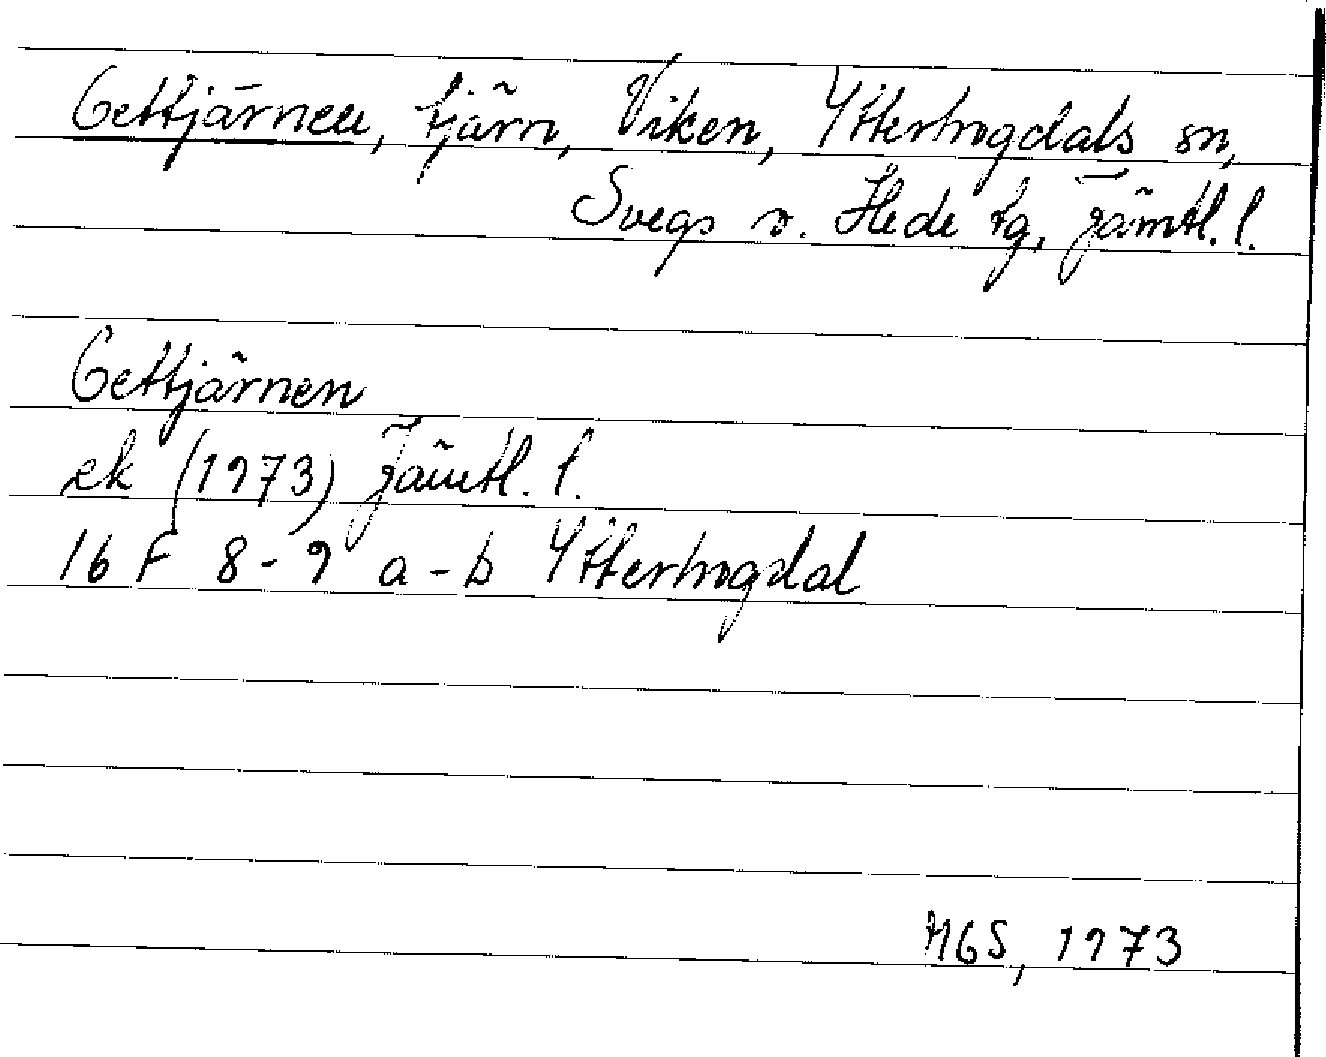 Gettjärnen, tjärn, Viken, Ytterhogdals sn,
Svegs o. Hede tg, Jämtl. l.
Gettjärnen
ek (1973) Jämtl. l.
16 F 8-9 a-b Ytterhogdal
MGS, 1973